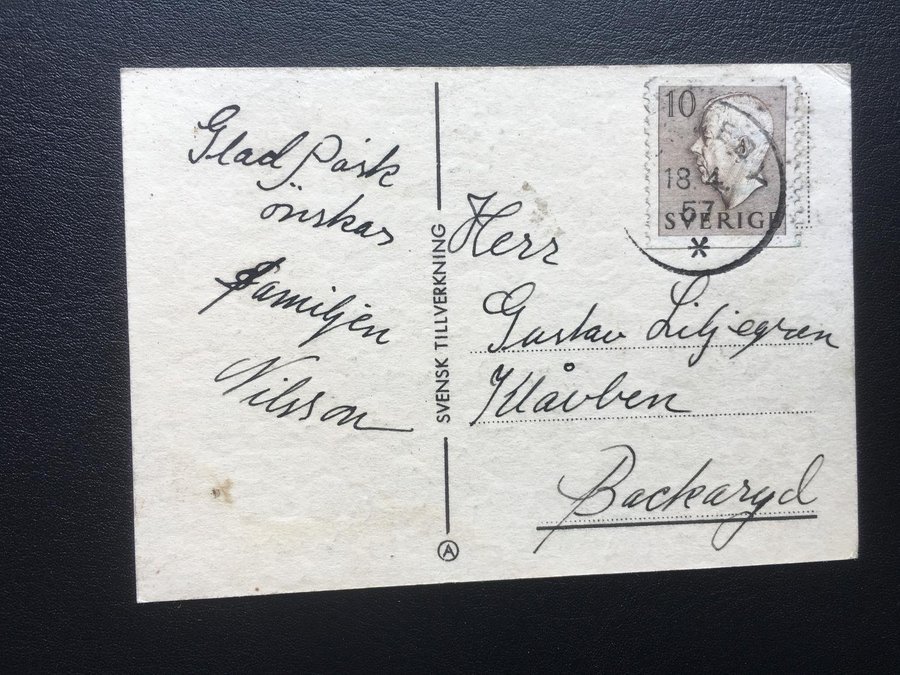 Glad Påsk
önskas
familjen
Nilsson
SVENSK TILLVERKNING
A
10
18.4
57
SVERIGE
*
Herr
Gustav Liljegren
Klåvben
Backaryd